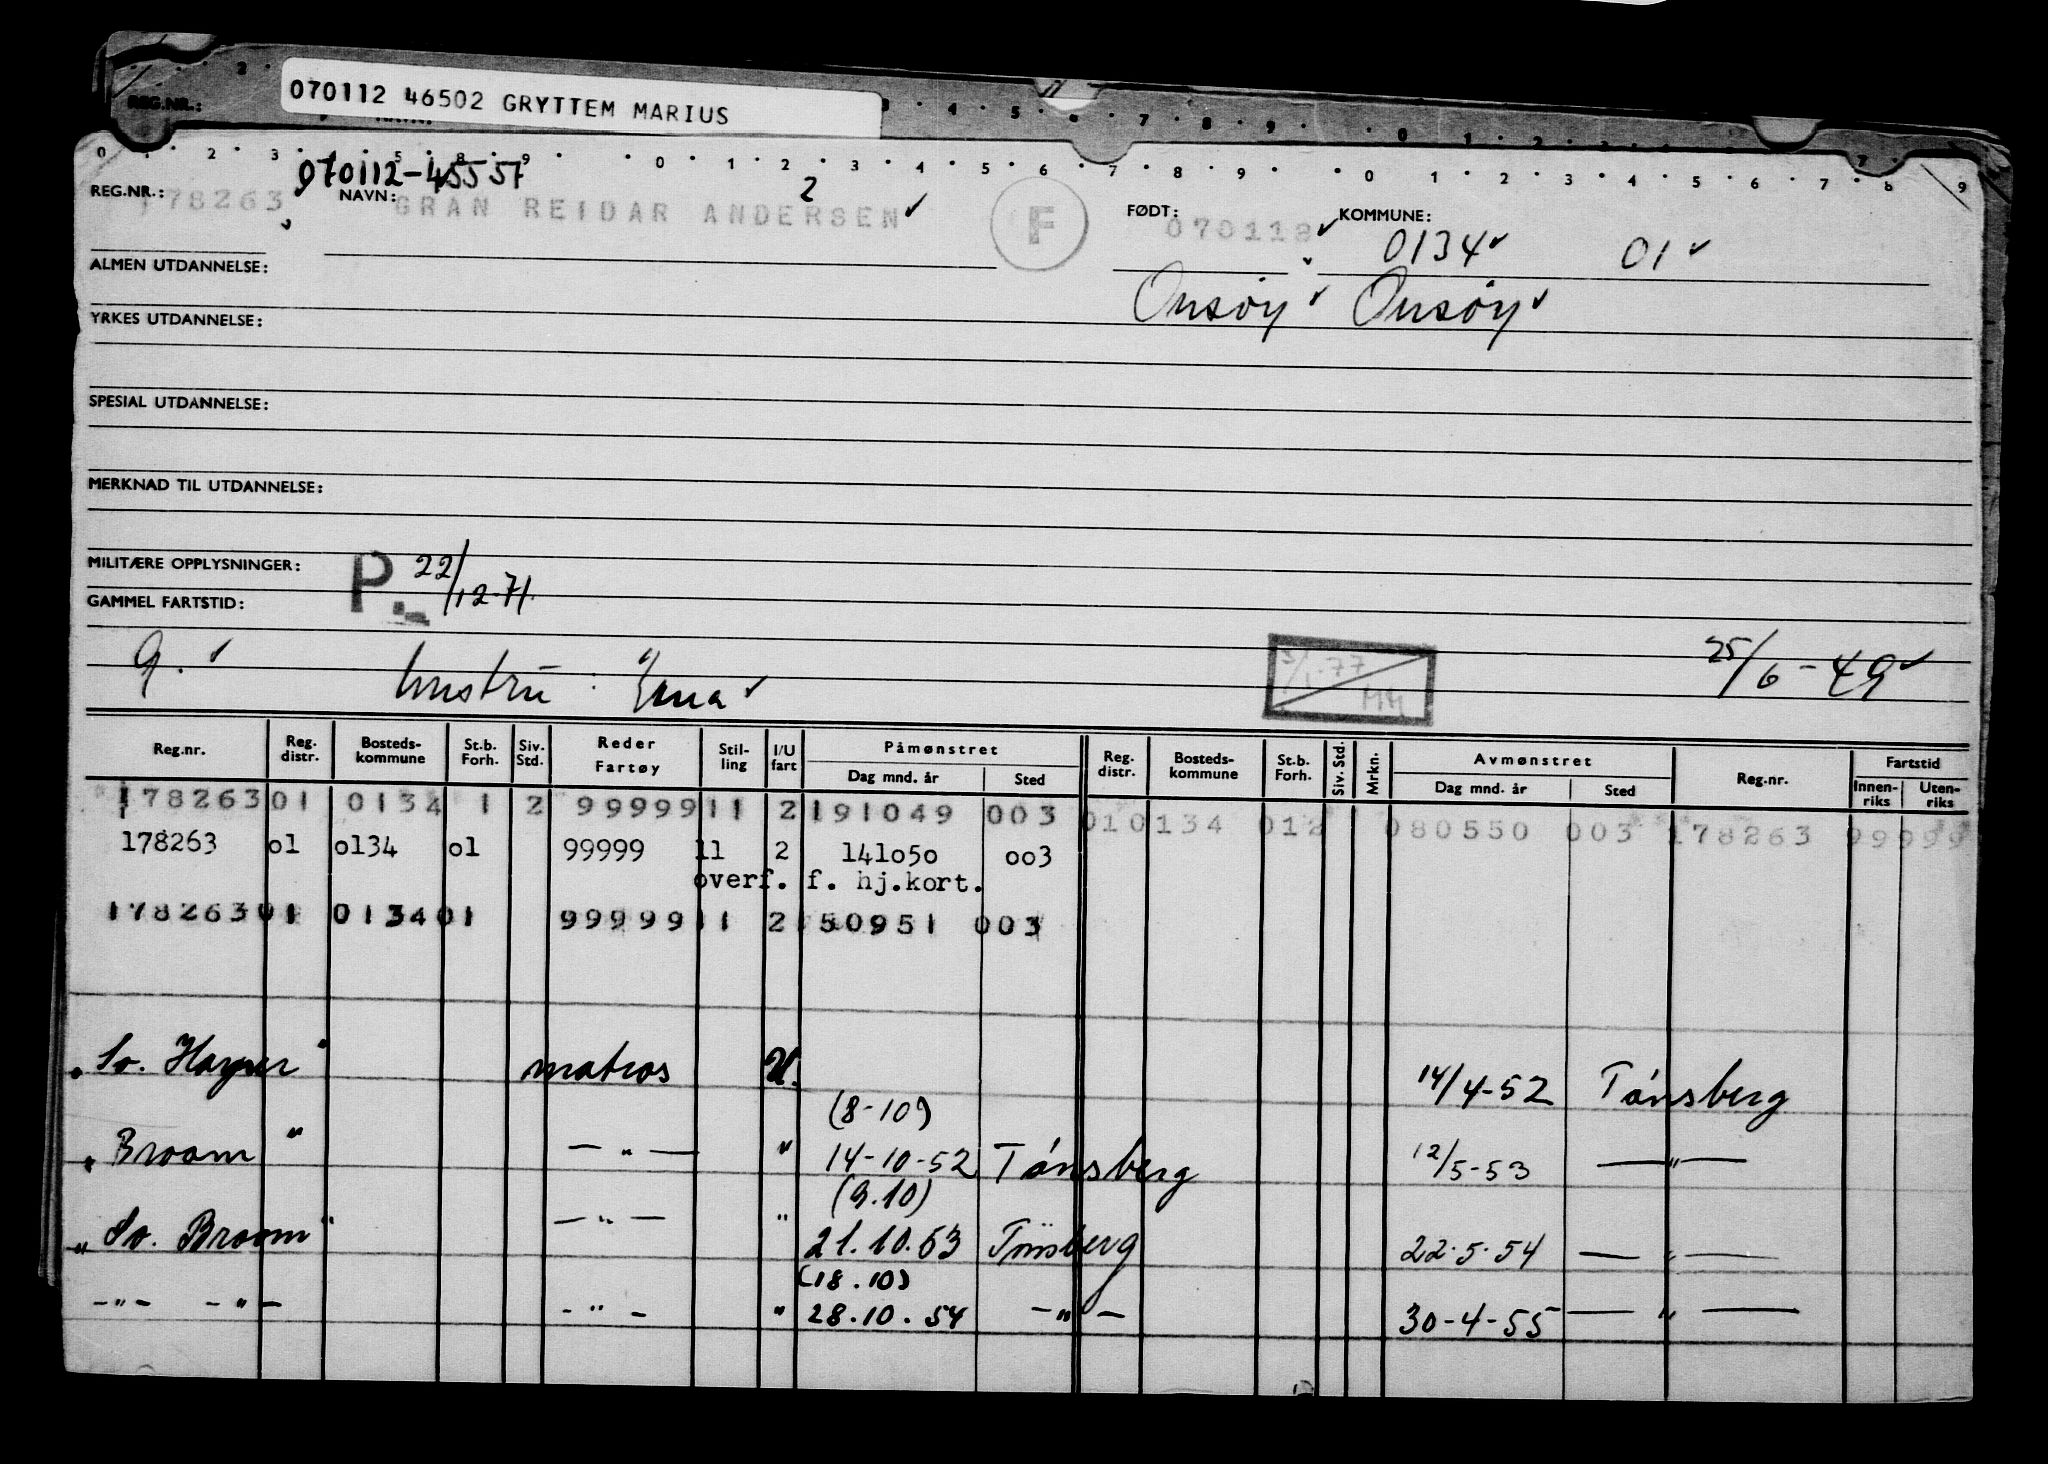 070112 46502 GRYTTEM MARIUS
REG.NR.:
070112-45557
2
REG.NR.: 178263 NAVN: GRAN REIDAR ANDERSEN ✓ F FØDT: 070112 ✓ KOMMUNE: 0134 ✓ 01 ✓
ALMEN UTDANNELSE: Onsøy ✓ Onsøy ✓
YRKES UTDANNELSE:
SPESIAL UTDANNELSE:
MERKNAD TIL UTDANNELSE:
MILITÆRE OPPLYSNINGER: P. 22/12-71.
GAMMEL FARTSTID:
g. ✓ hustru: ✓ 5/1-77 25/6-49 ✓
Reg.nr. Reg. distr. Bosteds-kommune St.b. Forh. Siv. Std. Reder Fartøy Stil-ling I/U fart Påmønstret Dag mnd. år Sted Reg. distr. Bosteds-kommune St.b. Forh. Siv. Std. Mrkn. Avmønstret Dag mnd. år Sted Reg.nr. Fartstid Innen-riks Uten-riks
178263 01 0134 1 2 99999 11 2 191049 003 01 0134 012 080550 003 178263 99999
178263 o1 o134 o1 99999 11 2 141o5o oo3
overf. f. hj.kort.
178263 01 0134 01 99999 11 2 50951 003
" So. Harper " matros U. 14/4-52 Tønsberg
(8-10)
" Broom " — " — " 14-10-52 Tønsberg 12/5-53 — " —
(9.10)
" So. Broom " — " — " 21.10.53 Tönsberg 22.5.54 — " —
(18.10)
- " - - " - - " - " 28.10.54 - " - 30-4-55 — " —